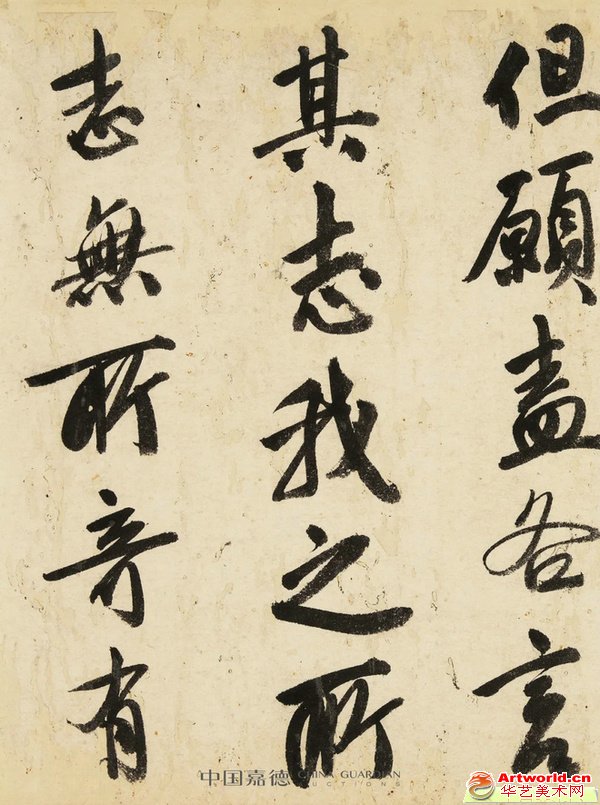 但願盍各言
其志我之所
志無所奇有
中国嘉德 CHINA GUARDIAN
AUCTIONS
Artworld.cn
华艺美术网